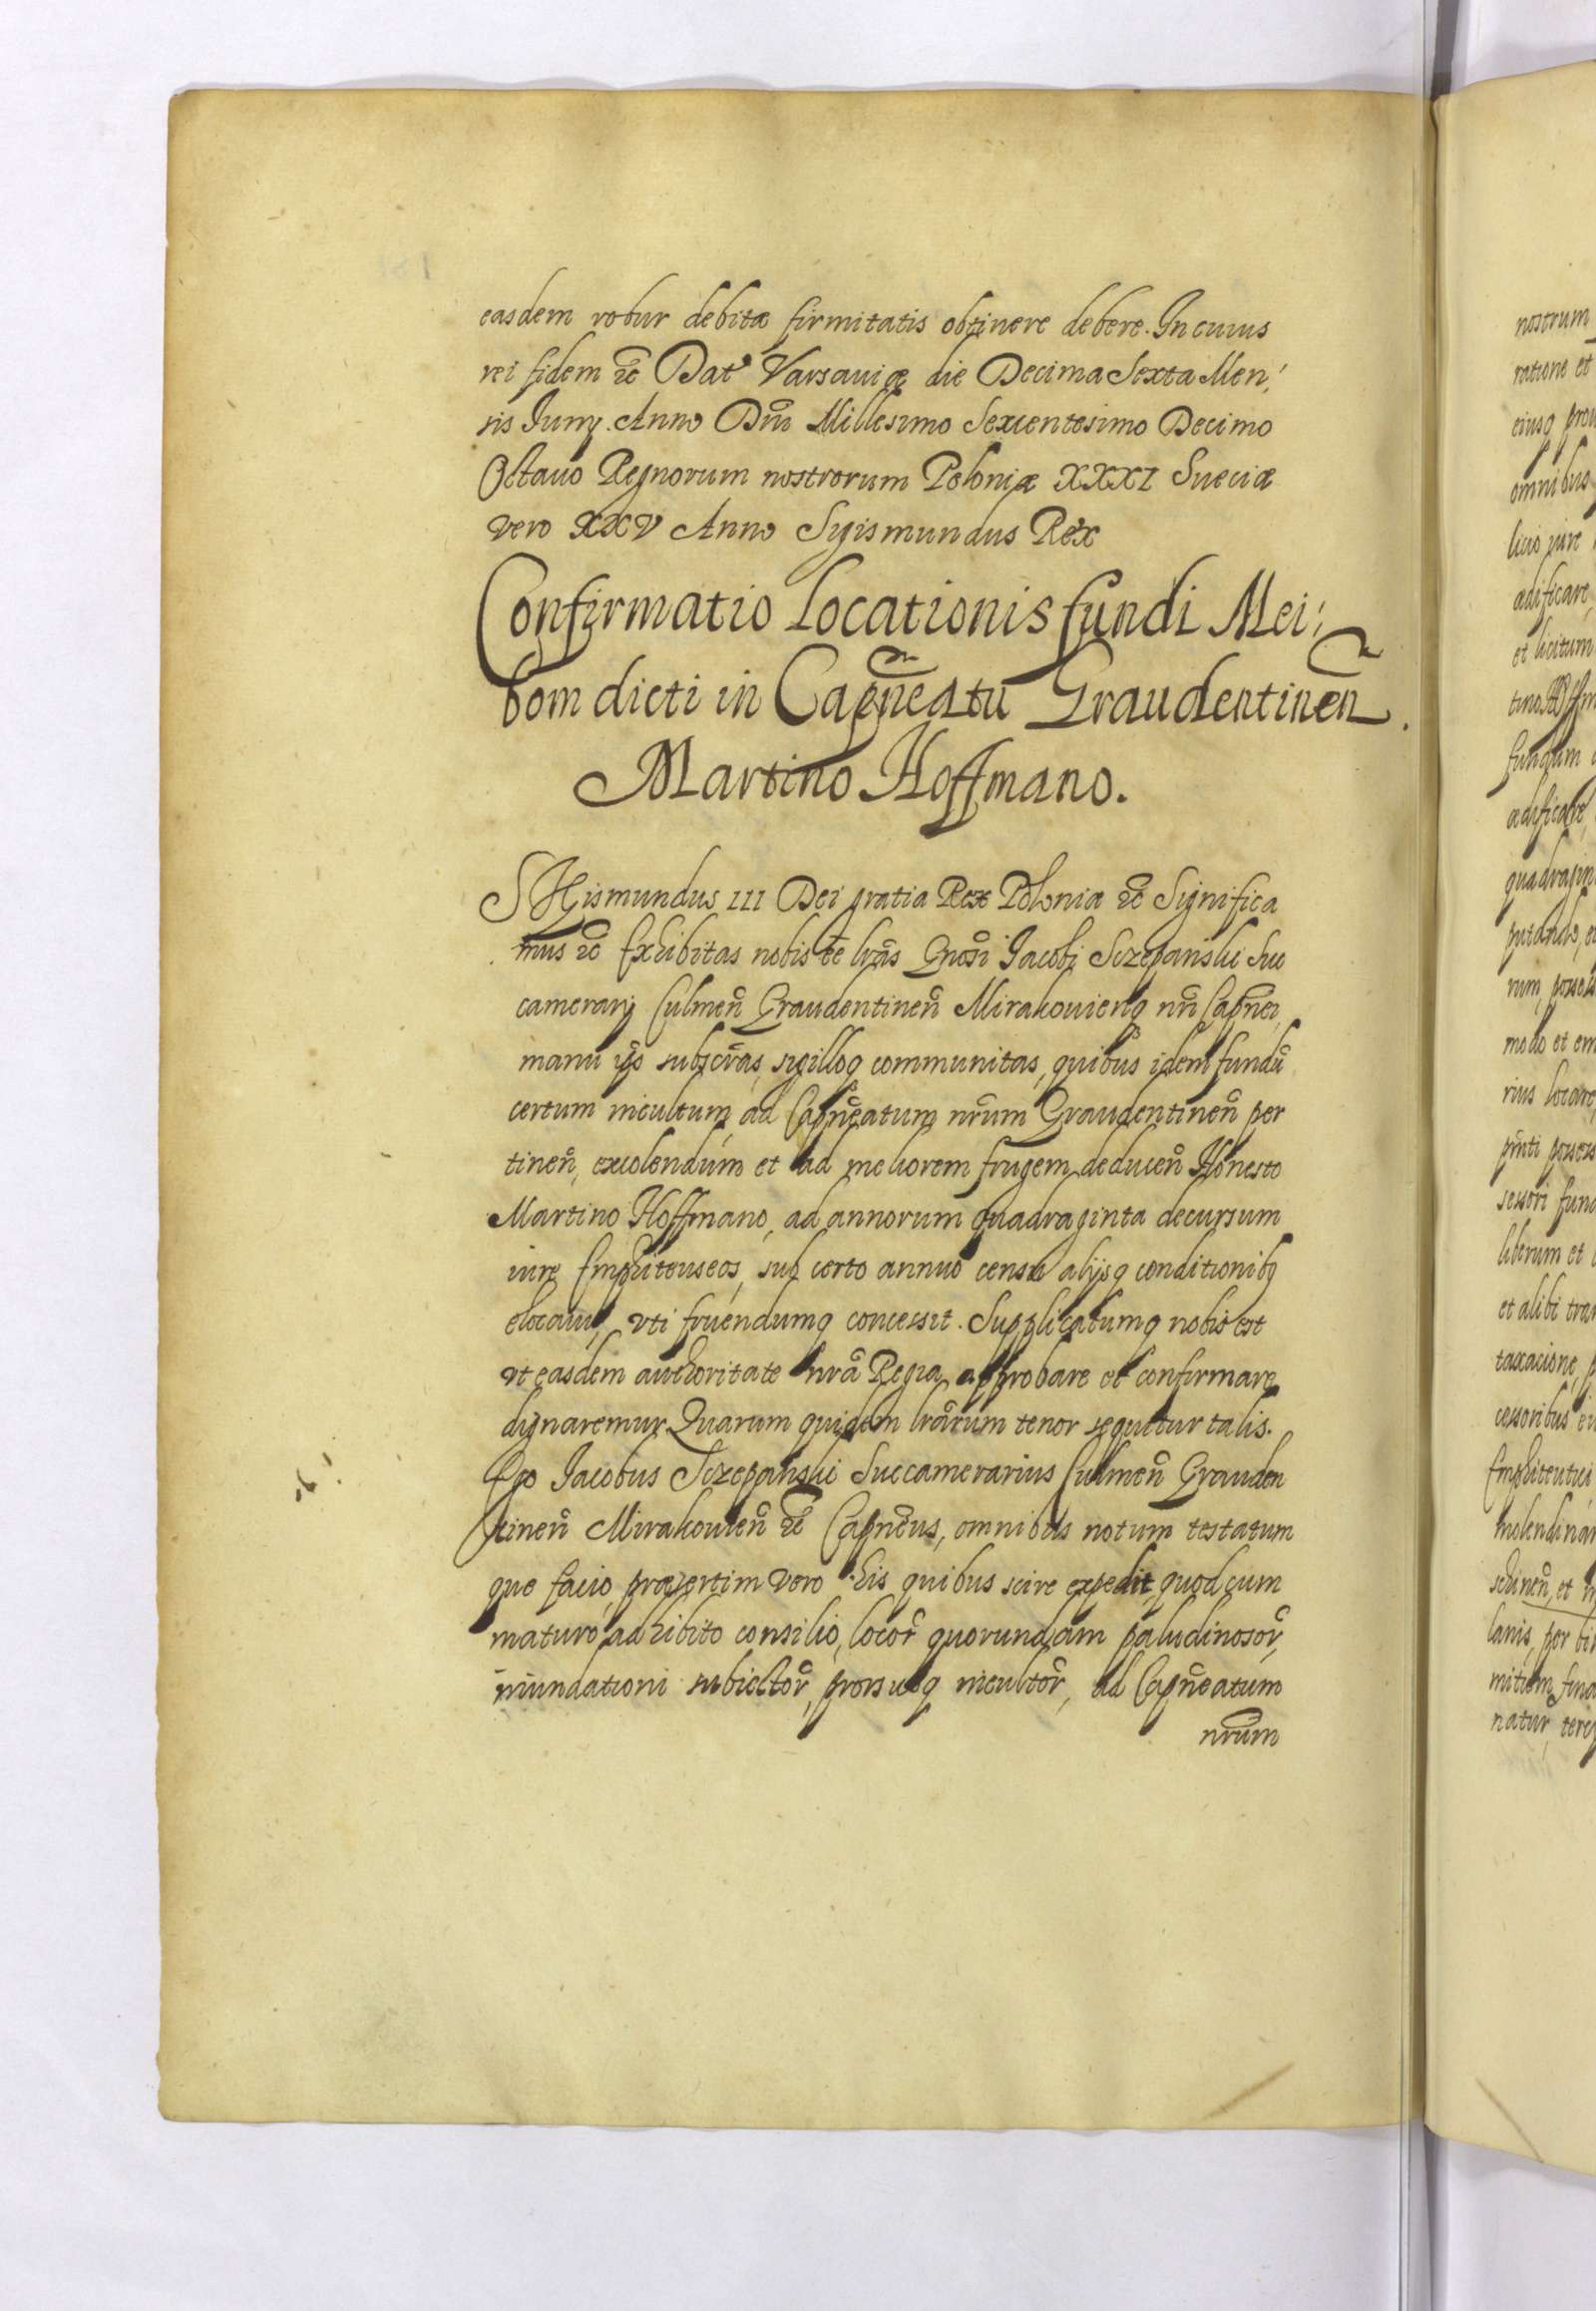 easdem robur debitæ firmitatis obtinere debere. In cuius
rei fidem etc Dat Varsauiæ die Decima Sexta Men:
sis Iunij. Anno Dñi Millesimo Sexcentesimo Decimo
Octauo Regnorum nostrorum Poloniæ XXXI Sueciæ
vero XXV Anno Sigismundus Rex
Confirmatio Locationis fundi Mei:
bom dicti in Capñeatu Graudentineñ.
Martino Hoffmano.
SIgismundus III Dei gratia Rex Poloniæ etc Significa
mus etc Exhibitas nobis ee lrãs Gnosi Jacobi Sczepanski Suc
camerarij Culmeñ Graudentineñ Mirahouienq nrĩ Capñei,
manu ips subscrãs, sigilloq communitas, quibus idem fundũ
certum incultum, ad Capñeatum nrũm Graudentineñ per
tineñ, excolendum et ad meliorem frugem deduceñ Honesto
Martino Hoffmano, ad annorum quadraginta decursum
iure Emphiteuseos, sub certo annuo censu alijsq conditionibq
elocauit, vti fruendumq concessit. Supplicatumq nobis est
vt easdem authoritate nrã Regia approbare et confirmare
dignaremur Quarum quidem lrãrum tenor sequitur talis.
Ego Jacobus Sczepanski Succamerarius Culmeñ Grauden
tineñ Mirahouieñ etc Capñeus, omnibus notum testatum
que facio, præsertim vero his quibus scire expedit, quod cum
maturo adhibito consilio, locor̃ quorundam paludinosor̃,
inundationi subiector̃, prorsusq incultor̃, ad Capñeatum
nrũm
nostrum
ratione et
eiusq
omnibus
licio iure
ædificare
et licitum
fundum
ædificare
rum,
modo et em
rius locare
sessori fund
liberum et
et alibi tran
taxacione,
cessoribus
Emphiteutici
molendinar
lanis, per